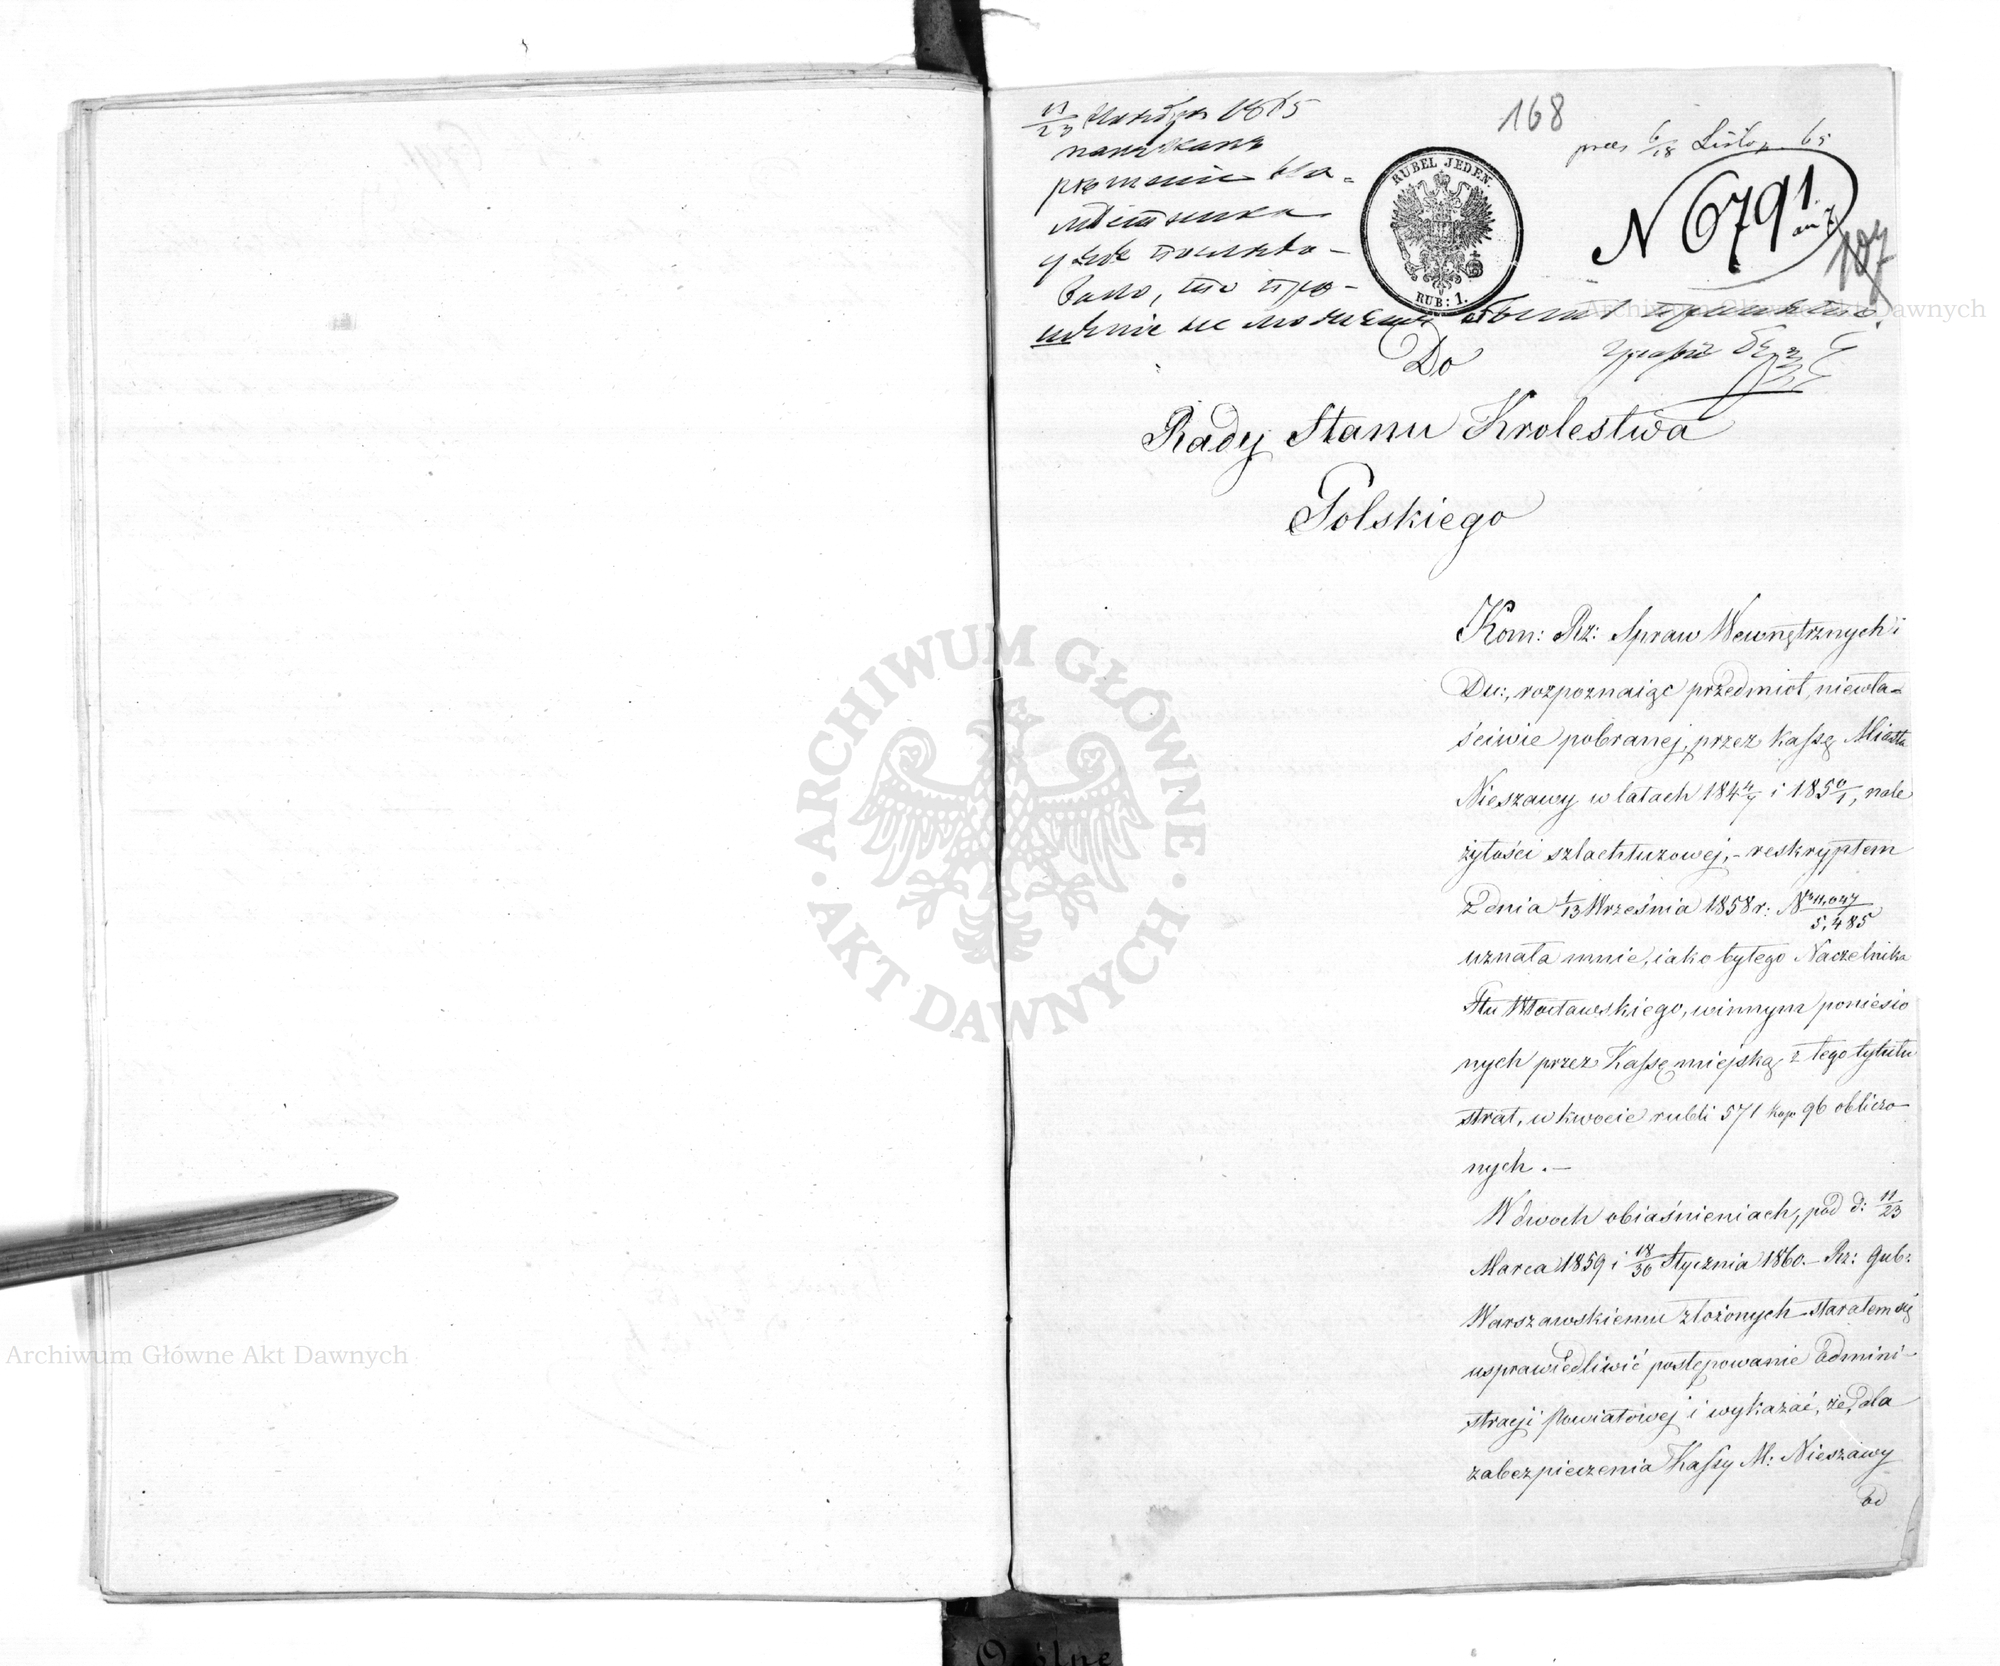 11/23 1865
168
prez 6/18 Listop. 65
RUBEL JEDEN.
RUB: 1.
N 6791.
107
Do
Rady Stanu Krolestwa
Polskiego
Kom: Rz: Spraw Wewnętrznych i
Du:, rozpoznaiąc przedmiot, niewła-
ściwie pobranej, przez Kassę Miasta
Nieszawy w latach 184 4/7 i 185 0/1, nale
żytości szlachtuzowej,- reskryptem
z dnia 1/13 Września 1858 r: Nr 11,047/5,485
uznała mnie, iako byłego Naczelnika
Ptu Włocławskiego, winnym poniesio
nych przez Kassę miejską z tego tytułu
strat, w kwocie rubli 571 kop 96 obliczo
nych.-
W dwoch obiaśnieniach, pod d: 11/23
Marca 1859 i 18/30 Stycznia 1860.- Rz: Gub:
Warszawskiemu złożonych starałem się
usprawiedliwić postępowanie Admini-
stracji Powiatowej i wykazać, że, dla
zabezpieczenia Kassy M: Nieszawy
od
ARCHIWUM GŁÓWNE AKT DAWNYCH
Archiwum Główne Akt Dawnych
Archiwum Główne Akt Dawnych